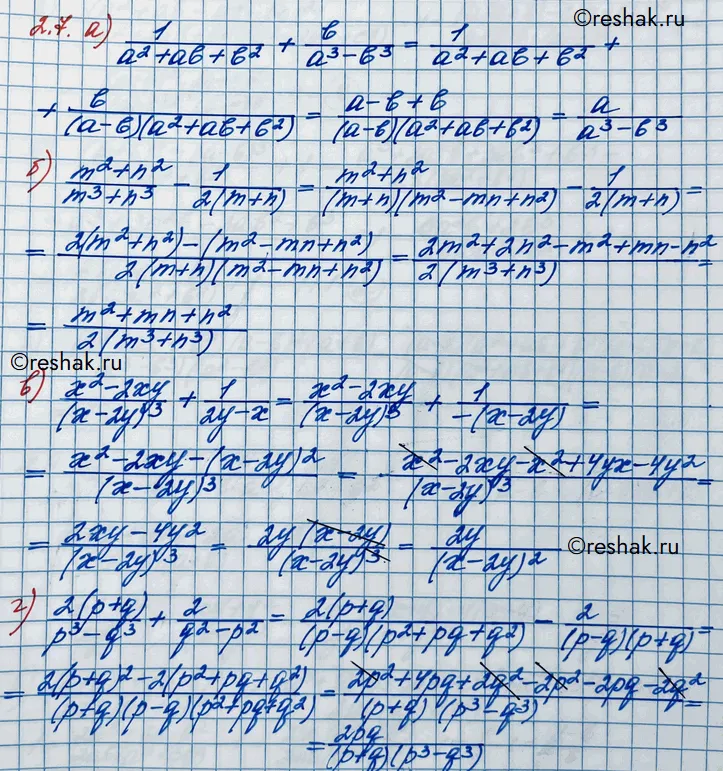 ©reshak.ru
2.7. а) 1/(a²+ab+b²) + b/(a³-b³) = 1/(a²+ab+b²) +
+ b/((a-b)(a²+ab+b²)) = (a-b+b)/((a-b)(a²+ab+b²)) = a/(a³-b³)
б) (m²+n²)/(m³+n³) - 1/(2(m+n)) = (m²+n²)/((m+n)(m²-mn+n²)) - 1/(2(m+n)) =
= (2(m²+n²)-(m²-mn+n²))/(2(m+n)(m²-mn+n²)) = (2m²+2n²-m²+mn-n²)/(2(m³+n³)) =
= (m²+mn+n²)/(2(m³+n³))
©reshak.ru
в) (x²-2xy)/(x-2y)³ + 1/(2y-x) = (x²-2xy)/(x-2y)³ + 1/(-(x-2y)) =
= (x²-2xy-(x-2y)²)/(x-2y)³ = (x²-2xy-x²+4yx-4y²)/(x-2y)³ =
= (2xy-4y²)/(x-2y)³ = (2y(x-2y))/(x-2y)³ = 2y/(x-2y)²
©reshak.ru
г) (2(p+q))/(p³-q³) + 2/(q²-p²) = (2(p+q))/((p-q)(p²+pq+q²)) - 2/((p-q)(p+q)) =
= (2(p+q)²-2(p²+pq+q²))/((p+q)(p-q)(p²+pq+q²)) = (2p²+4pq+2q²-2p²-2pq-2q²)/((p+q)(p³-q³)) =
= 2pq/((p+q)(p³-q³))